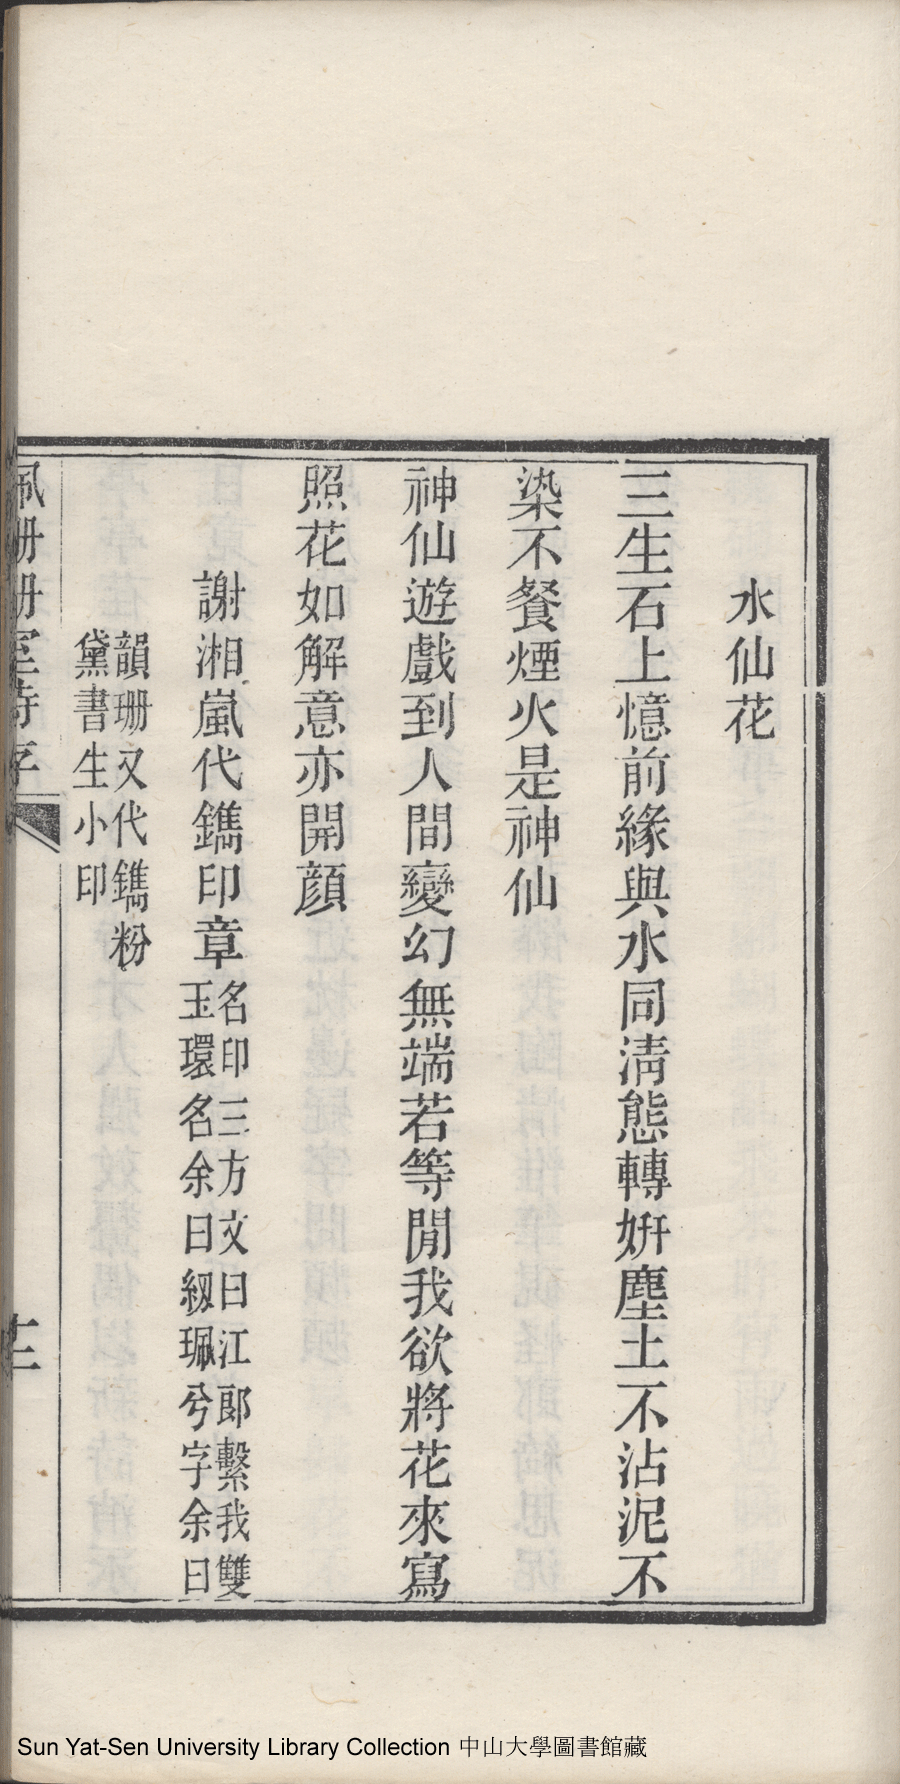 水仙花
三生石上憶前緣與水同淸態轉姸塵土不沾泥不
染不餐煙火是神仙
神仙遊戲到人間變幻無端若等閒我欲將花來寫
照花如解意亦開顔
謝湘嵐代鐫印章
名印三方文曰江郎繫我雙
玉環名余曰紉珮兮字余曰
韻珊又代鐫粉
黛書生小印
珊珊室詩存
十二
Sun Yat-Sen University Library Collection 中山大學圖書館藏